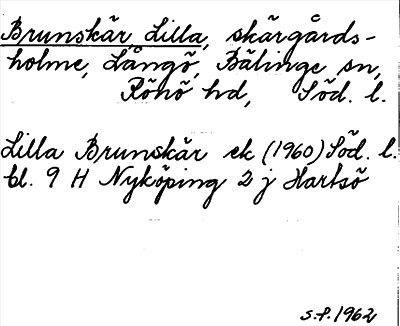 Brunskär, Lilla, skärgårds-
holme, Långö, Bälinge sn,
Rönö hd, Söd. l.
Lilla Brunskär ek (1960) Söd. l.
bl. 9 H Nyköping 2 j Hartsö
S.P. 1962